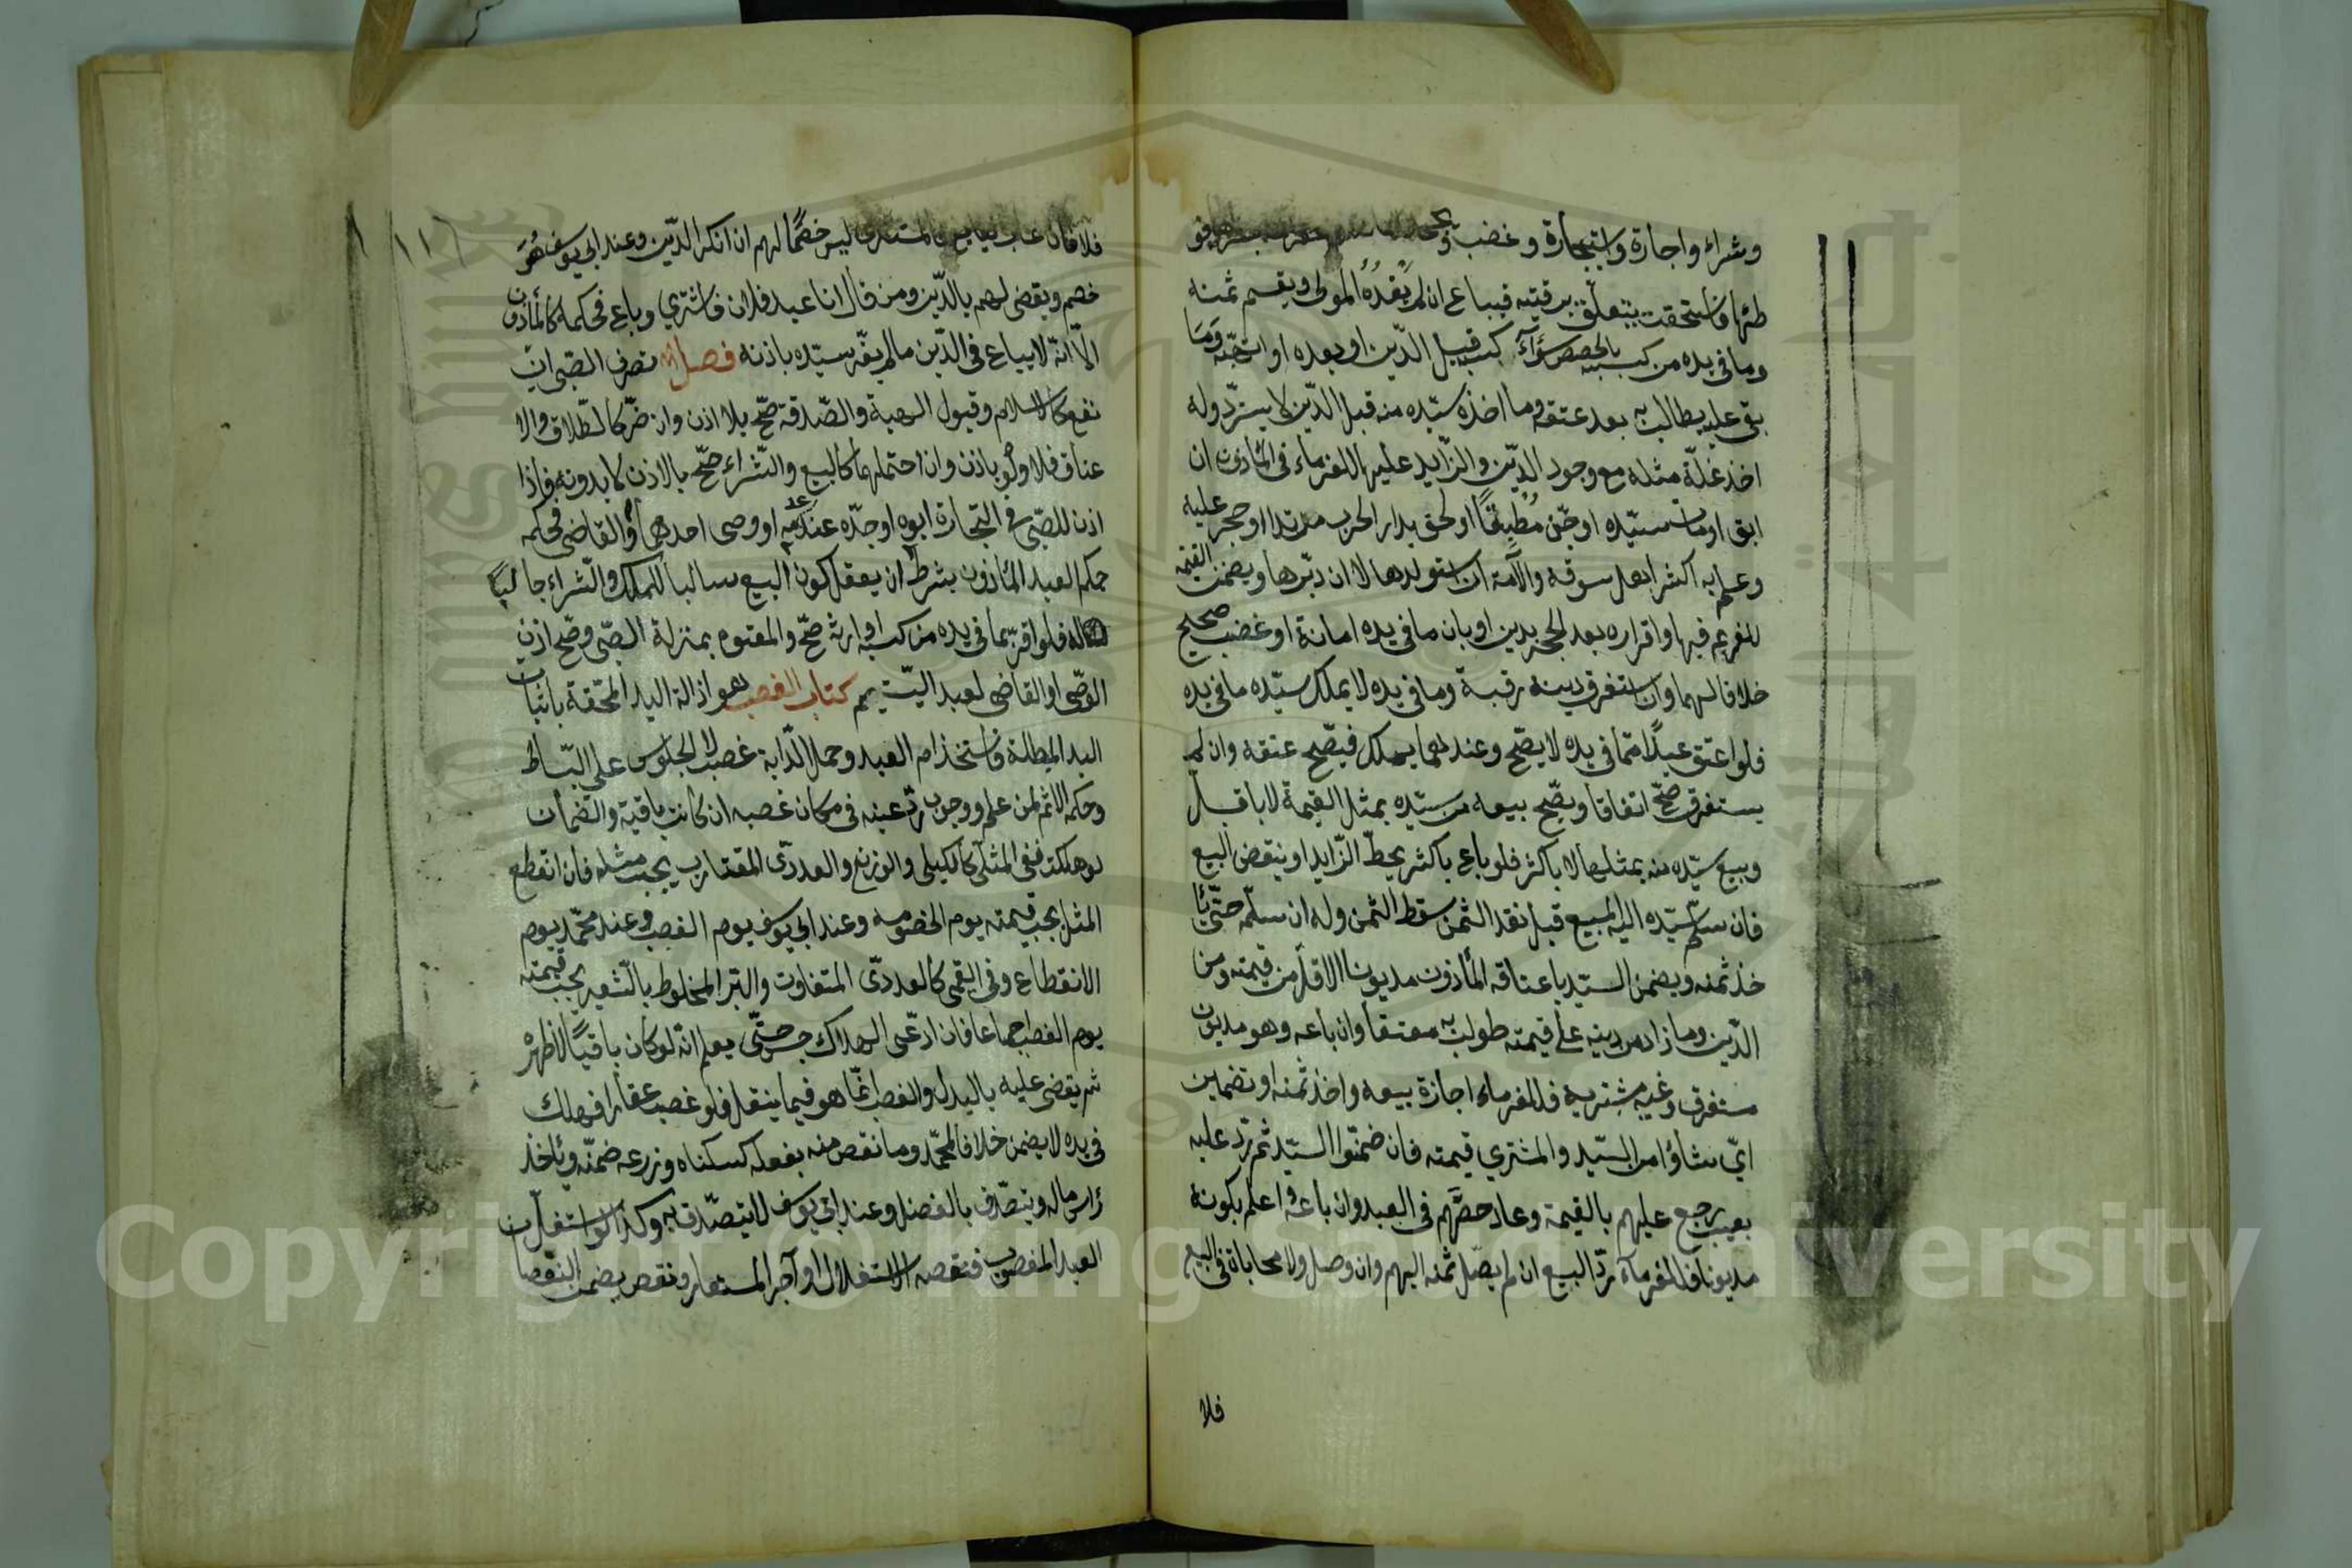 وشراء واجارة واستيجارة وغضب و
طئها فاستحقت يتعلق برقبته فيباع ان لم يفده المولى ويقسم ثمنه
وما في يده من كسبه بالحصص سواء كسب قبيل الدين او بعده او اتهبه وما
بقى عليه يطالب به بعد عتقه وما اخذه سيده منه قبل الدين لا يسترد وله
اخذ غلة مثله مع وجود الدين والزايد عليها للغرماء في المأذون ان
ابق او مات سيده او جن مطبقا او لحق بدار الحرب مرتدا او حجر عليه
وعلم به اكثر اهل سوقه والأمة ان استولدها لا ان دبرها ويضمن القيمة
للغريم فيها واقراره بعد الحجر بدين او بان ما في يده امانة او غضب صحيح
خلافا لهما وان استغرق دينه رقبة وما في يده لا يملك سيده ما في يده
فلو اعتق عبدا مما في يده لا يصح وعندهما يملك فيصح عتقه وان لم
يستغرق صح اتفاقا ويصح بيعه من سيده بمثل القيمة لا باقل
وبيع سيده منه بمثلها لا باكثر فلو باع باكثر يحط الزايد او ينقض البيع
فان سلم سيده اليه المبيع قبل نقد الثمن سقط الثمن وله ان سلمه حتى يأ
خذ ثمنه ويضمن السيد باعتاقه المأذون مديونا الاقل من قيمته ومن
الدين وما زاد من دينه على قيمته طولب به معتقا وان باعه وهو مديون
مستغرق وغيبه مشتريه فللغرماء اجازة بيعه واخذ ثمنه او تضمين
اي شاؤا من السيد والمشتري قيمته فان ضمنوا السيد ثم رد عليه
بعيب رجع عليهم بالقيمة وعاد حقهم في العبد وان باعه واعلم بكونه
مديونا فللغرماء رد البيع ان لم يصل ثمنه اليهم وان وصل ولا محاباة في البيع
فلا
فلا فان غاب فالمشتري ليس خصما لهم ان انكر الدين وعند ابي يوسف هو
خصم ويقضى لهم بالدين ومن قال انا عبد فلان فاشتري وباع فحكمه كالمأذون
الا انه لا يباع في الدين ما لم يقر سيده باذنه فصل تصرف الصبي ان
نفع كالاسلام وقبول الهبة والصدقة صح بلا اذن وان ضر كالطلاق والا
عتاق فلا ولو باذن وان احتملهما كالبيع والشراء صح بالاذن لا بدونه فاذا
اذن للصبي في التجارة ابوه او جده عند عدمه او وصى احدهما او القاضى فحكمه
حكم العبد المأذون بشرط ان يعقل كون البيع سالبا للملك والشراء جالبا
له فلو اقر بما في يده من كسبه او ارث صح والمعتوه بمنزلة الصبي وصح اذن
الوصي او القاضى لعبد اليتيم كتاب الغصب هو ازالة اليد المحقة باثبات
اليد المبطلة فاستخدام العبد وحمل الدابة غصب لا الجلوس على البساط
وحكمه الاثم لمن علم ووجوب رد عينه في مكان غصبه ان كانت باقية والضمان
لو هلكت ففي المثلى كالكيلى والوزني والعددى المتقارب يجب مثله فان انقطع
المثل يجب قيمته يوم الخصومه وعند ابي يوسف يوم الغصب وعند محمد يوم
الانقطاع وفي القيمي كالعددى المتفاوت والبر المخلوط بالشعير يجب قيمته
يوم الغصب اجماعا فان ادعى الهلاك حبس حتى يعلم انه لو كان باقيا لاظهره
ثم يقضى عليه بالبدل والغصب انما هو فيما ينقل فلو غصب عقارا فهلك
في يده لا يضمن خلافا لمحمد وما نقص منه بفعله كسكناه وزرعه ضمنه ويأخذ
رأس ماله ويتصدق بالفضل وعند ابي يوسف لا يتصدق به وكذا لو استغل
العبد المغصوب فنقصه الاستغلال او آجر المستعار ونقص يضمن النقصان
١١٦
Copyright © King Saud University